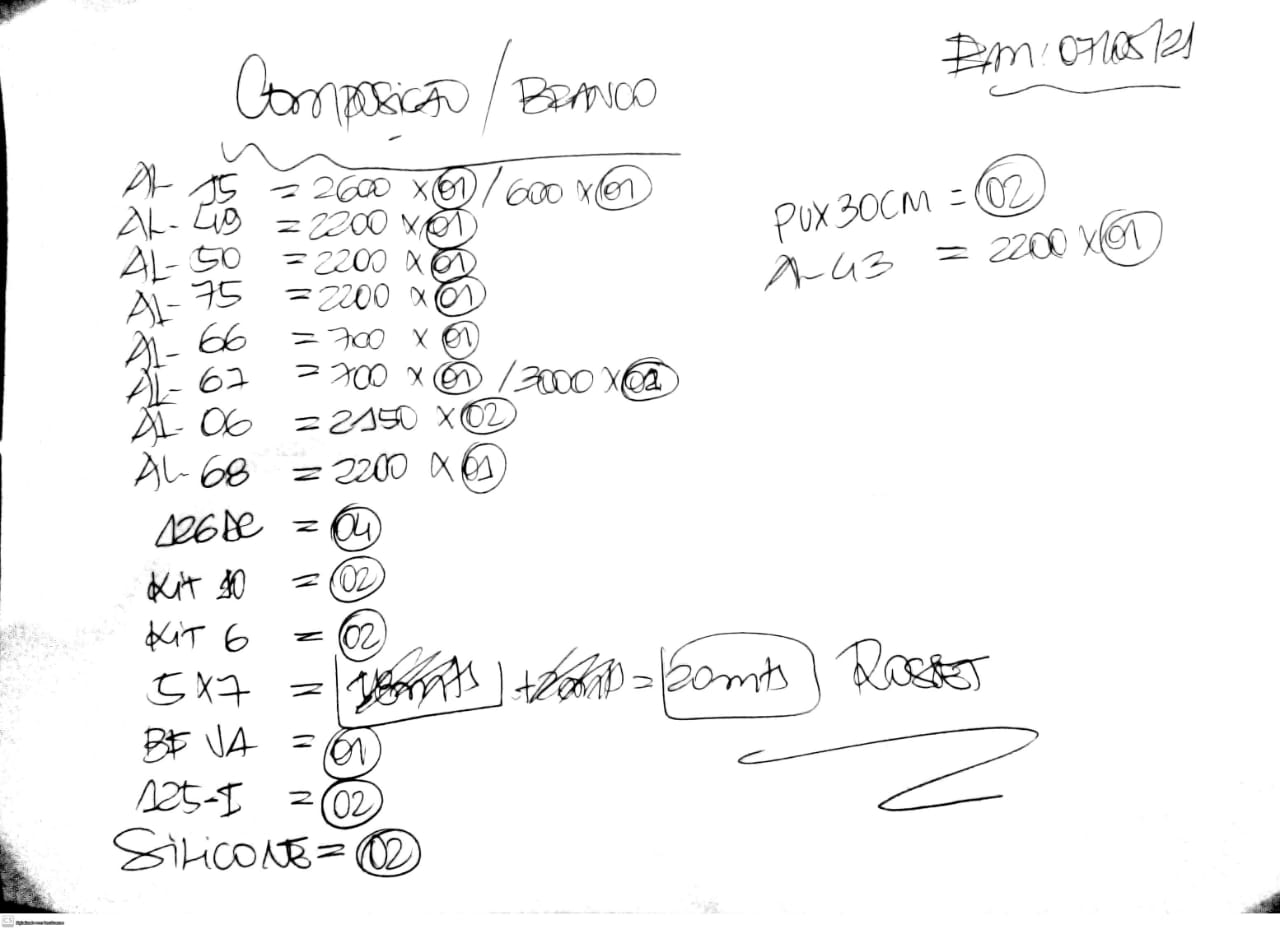 Em: 07/05/21
COMPOSIÇÃO / BRANCO
AL- 15 = 2600 x 01 / 600 x 01
AL- 49 = 2200 x 01
AL- 50 = 2200 x 01
AL- 75 = 2200 x 01
AL- 66 = 700 x 01
AL- 67 = 700 x 01 / 3000 x 02
AL- 06 = 2150 x 02
AL- 68 = 2200 x 01
126 AC = 04
KIT 10 = 02
KIT 6 = 02
5 X 7 = = 20mts
125-I = 02
SILICONE = 02
PUX 30CM = 02
AL- 43 = 2200 x 01